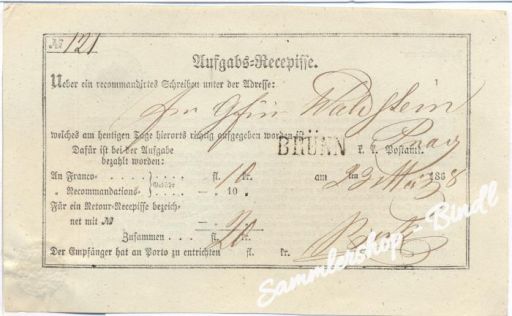 № 121
Aufgabs-Recepisse.
Ueber ein recommandirtes Schreiben unter der Adresse:
An Gfin Waldstein
welches am heutigen Tage hierorts richtig aufgegeben worden ist
Prag
Dafür ist bei der Aufgabe
bezahlt worden:
BRÜNN k. k. Postamt
An Franco . . . . Gebühr fl. 10 kr.
am 23 März 1868
„ Recommandations- — 10 „
Für ein Retour-Recepisse bezeich-
net mit № — „
Zusammen . . . . fl. 20 kr.
Der Empfänger hat an Porto zu entrichten fl. kr.
Sammlershop - Bindl